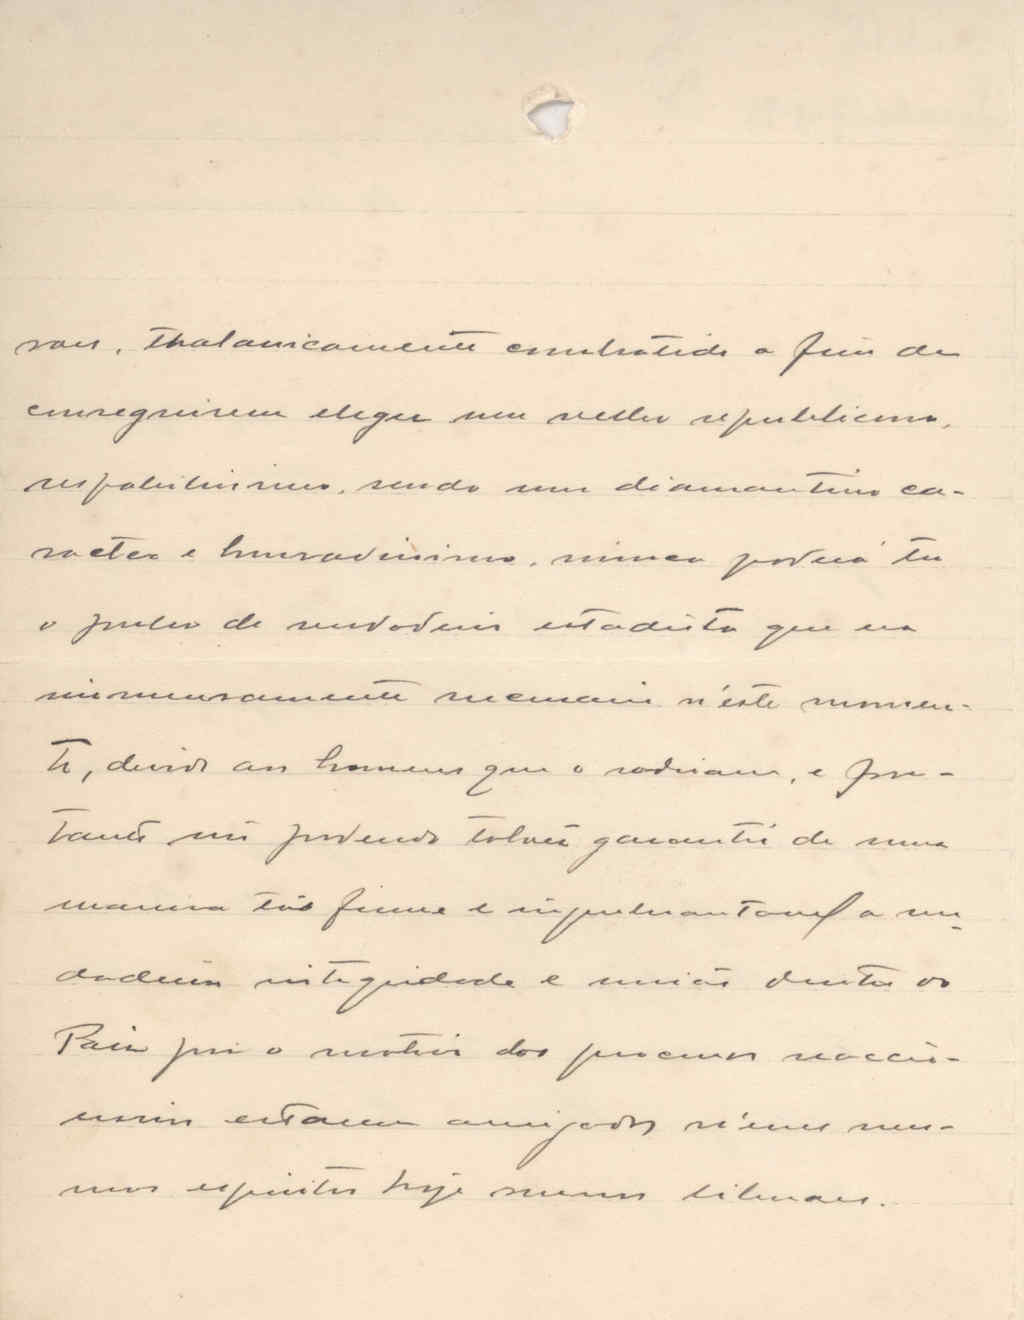 raes, thalassicamente combatido a fim de
conseguirem eleger um velho republicano,
respeitabilissimo, sendo um diamantino ca-
racter e honradissimo, nunca poderá ter
o pulso de verdadeiro estadista que era
immensamente necessario n'este momen-
to, devido aos homens que o rodeiam, e por-
tanto não podendo talvez garantir de uma
maneira tão firme e a ver-
dadeira integridade e união dentro do
Paiz por o motivo dos processos reaccio-
narios estarem arreigados n'esses mes-
mos espiritos hoje menos liberaes.